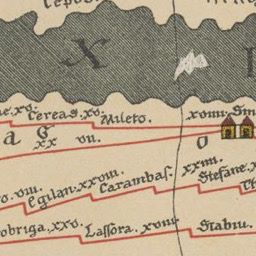 X
Cereas. xv. Mileto. xviii. Sm
a G xx vii. O
xxiiii.
o. viii. Egilan. xxviii. Carambas. Stefane. x
obriga. xxv. Lassora. xviiii. Stabiu.